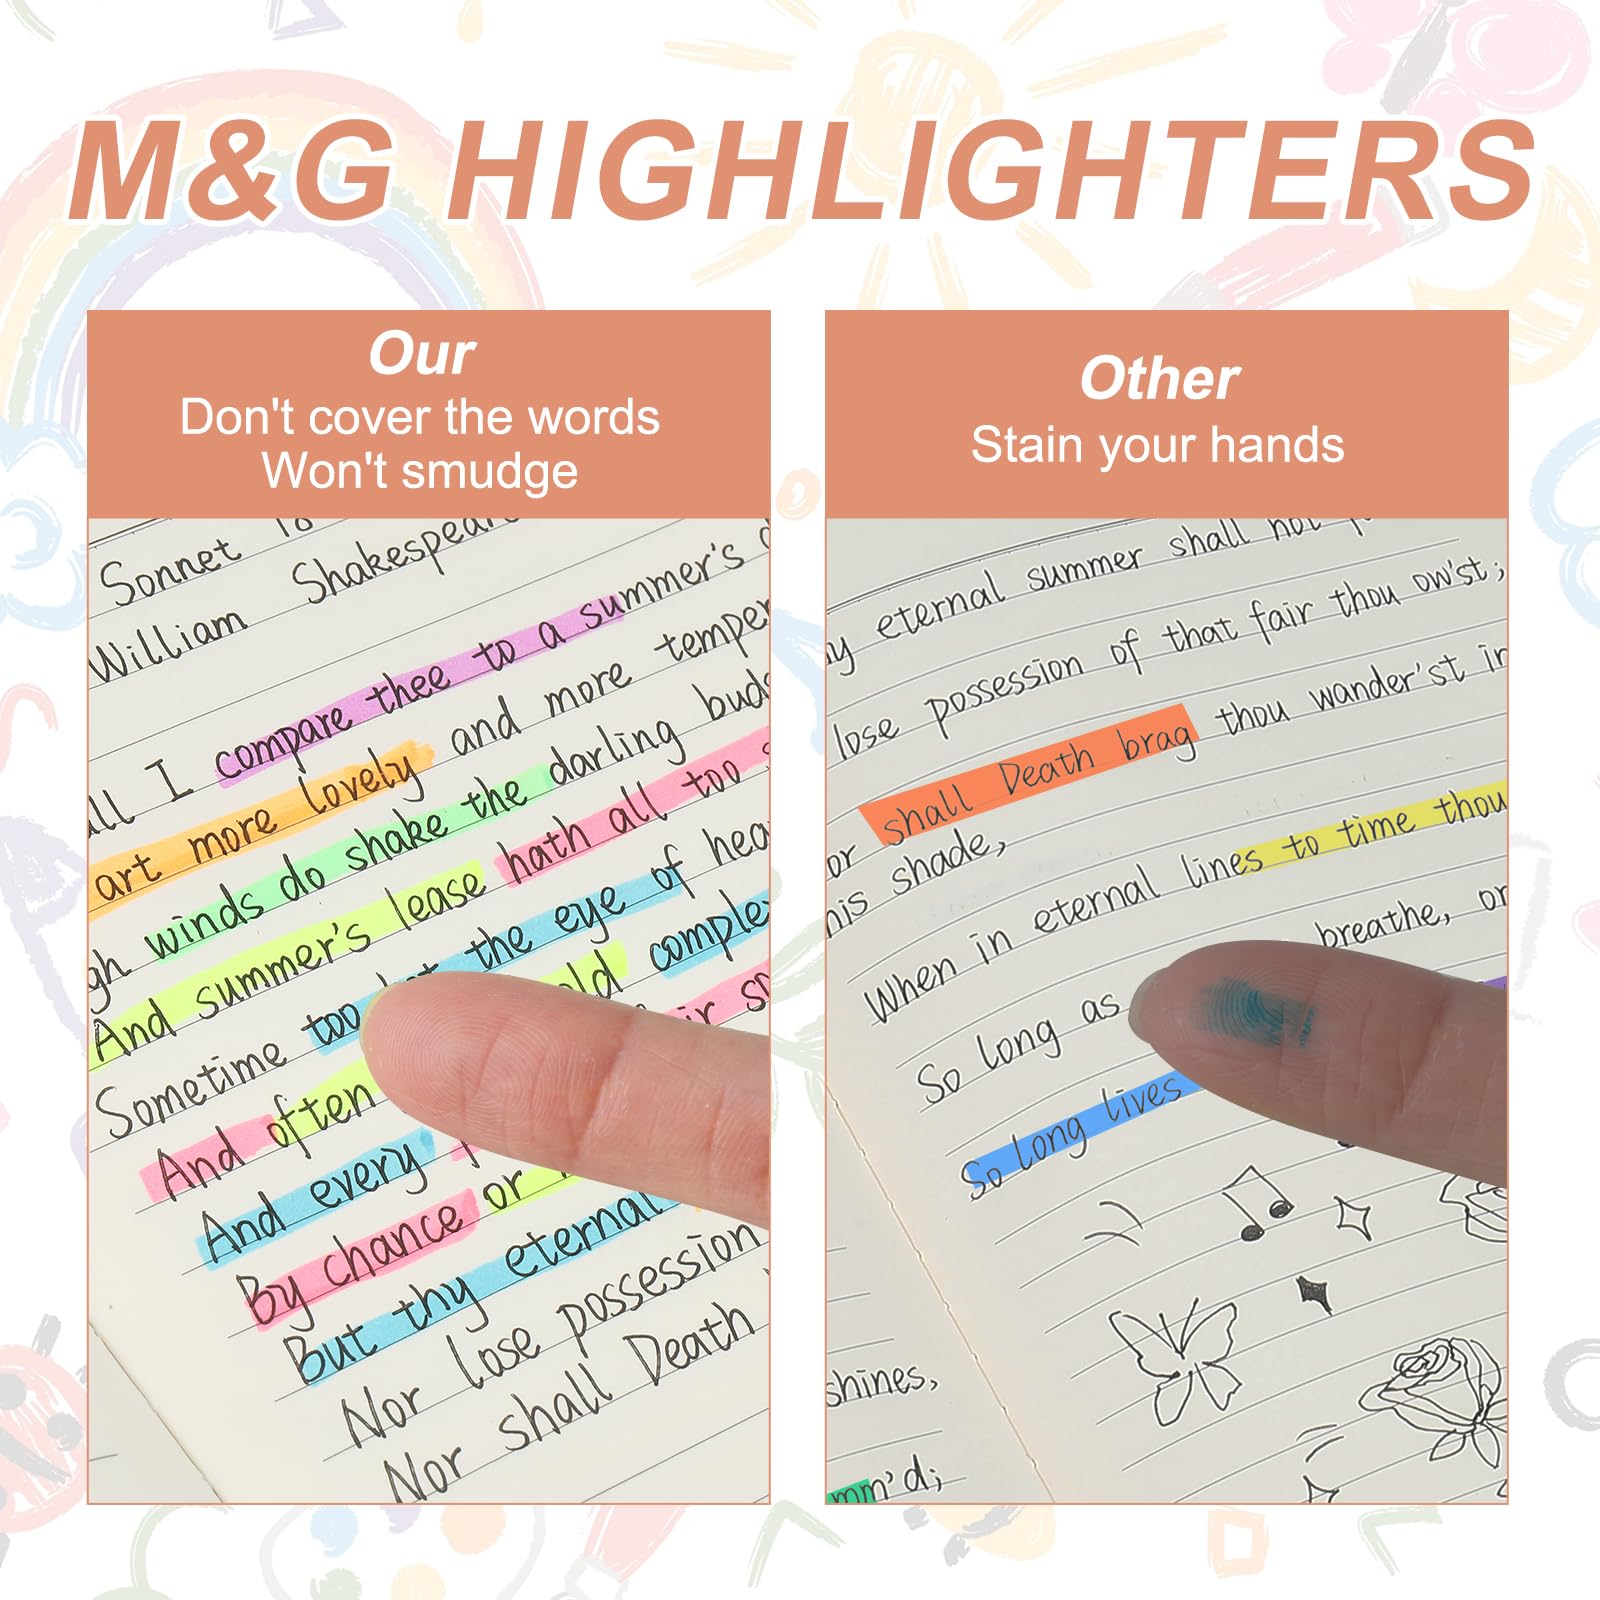 M&G HIGHLIGHTERS
Our
Don't cover the words
Won't smudge
Sonnet 18
William Shakespeare
I compare thee to a summer's
art more lovely and more
winds do shake the darling buds
And summer's lease hath all too
Sometime too the eye of
And often complex
And every
By chance or
But thy eternal
Nor lose possession
Nor shall Death
Other
Stain your hands
eternal summer shall not
lose possession of that fair thou ow'st;
or shall Death brag thou wander'st in
his shade,
When in eternal lines to time thou
So long as breathe, or
So long lives
shines,
mm'd;